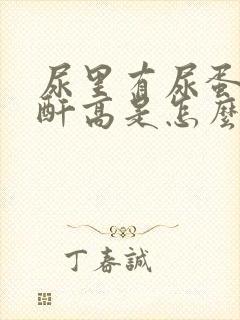 尿里有尿蛋
酐高是怎麼
丁春誠